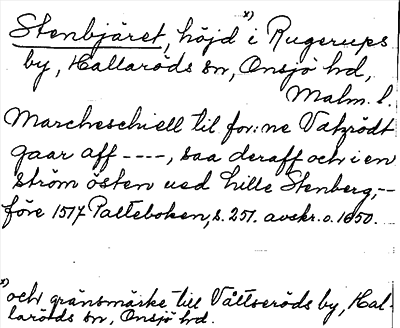 Stenbjäret, höjd x) i Rugerups
by, Hallaröds sn, Onsjö hd,
Malm. l.
Marcheschiell til for:ne Vatzrödt
gaar aff ----, saa deraff och i en
ström östen ued lille Stenberg,--
före 1517 Palteboken, s. 251. avskr. o. 1650.
x) och gränsmärke till Vättseröds by, Hal-
laröds sn, Onsjö hd.